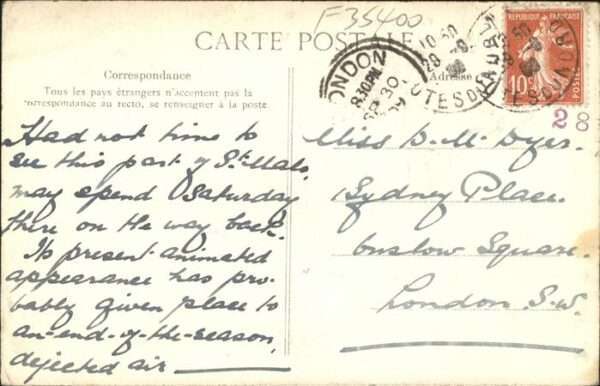 F35400
CARTE POSTALE
Correspondance
Tous les pays étrangers n'acceptent pas la
correspondance au recto, se renseigner à la poste.
Adresse
LONDON
8.30PM
SP 30
10 50
REPUBLIQUE FRANÇAISE
10c
POSTES
28
Had not time to
see this part of St. Malo.
may spend Saturday
there on the way back.
Its present animated
appearance has pro-
bably given place to
an-end-of-the-season,
dejected air
Miss D. M. Dyer.
1 Sydney Place.
Onslow Square.
London S.W.